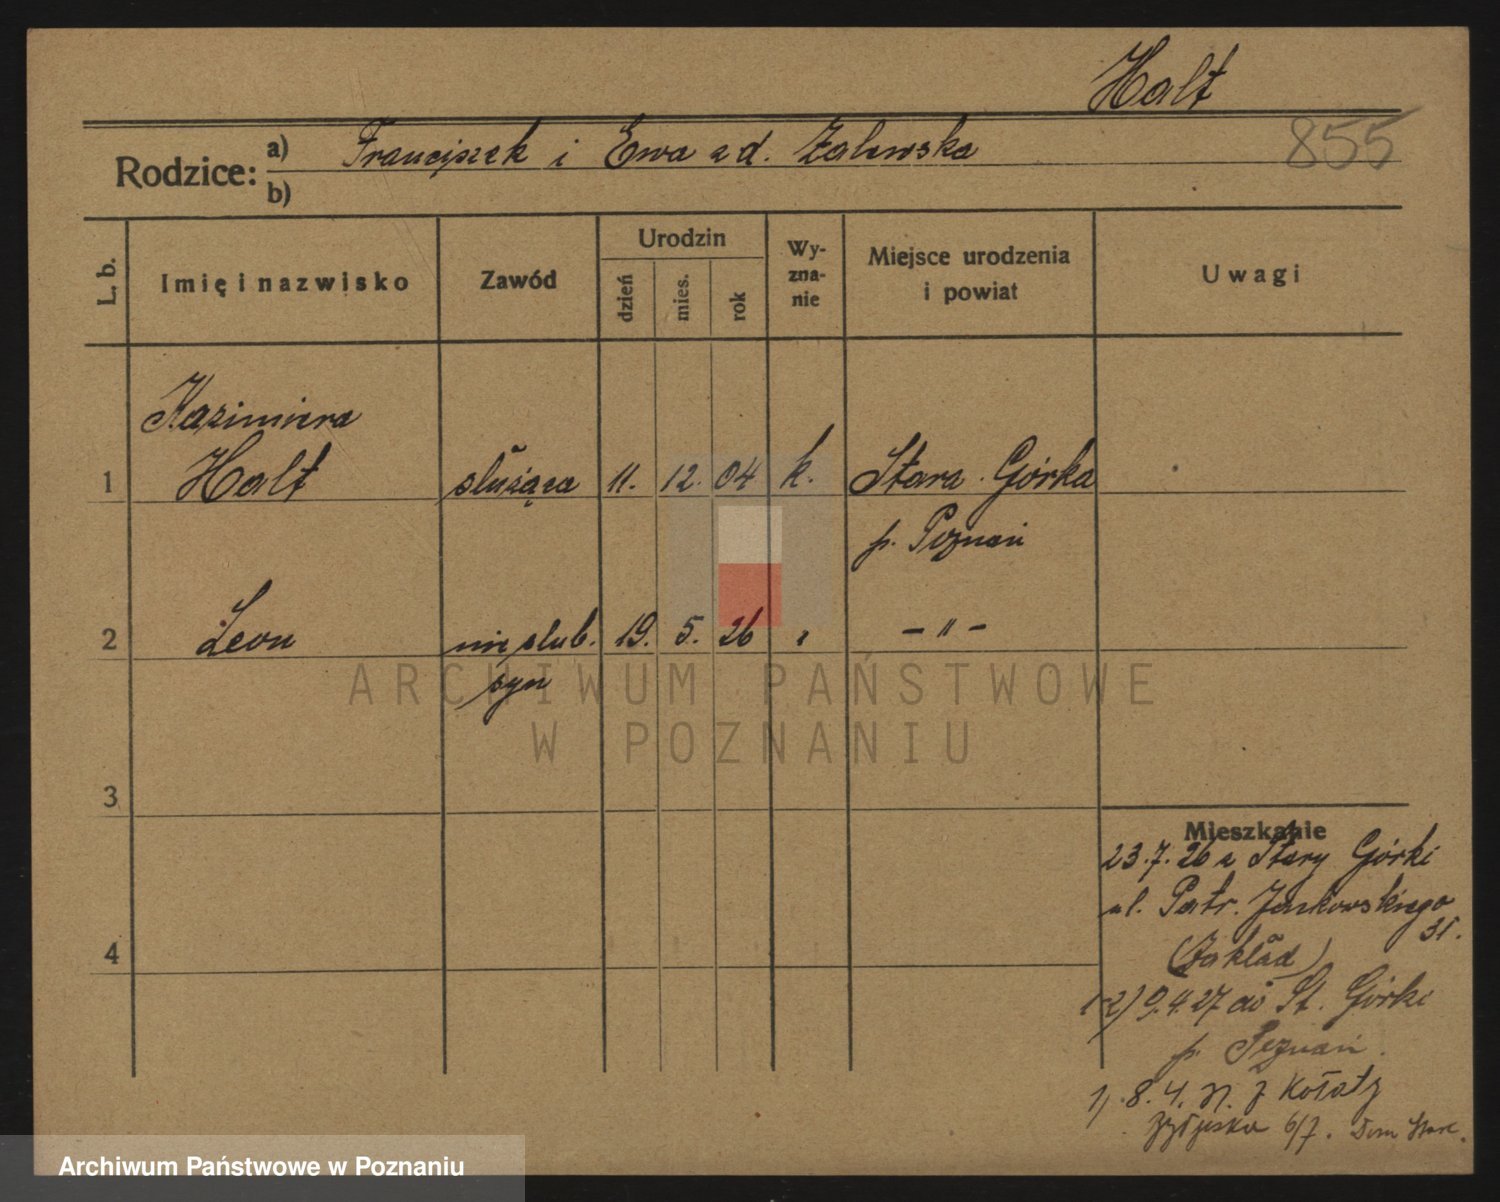 Halt
855
Rodzice: a) Franciszek i Ewa z d. Zalewska
b)
L. b. Imię i nazwisko Zawód Urodzin dzień mies. rok Wyznanie Miejsce urodzenia i powiat Uwagi
Kazimiera
1 Halt służąca 11. 12. 04 k. Stara Górka
p. Poznań
2 Leon nieślub. 19. 5. 26 " – " –
syn
ARCHIWUM PAŃSTWOWE
W POZNANIU
3
Mieszkanie
23.7.26 z Stary Górki
ul. Patr. Jankowskiego
31.
(Zakład)
4
1-2) 9.4.27 do St. Górki
p. Poznań.
1) 8.4. z
6/7. Dom
Archiwum Państwowe w Poznaniu